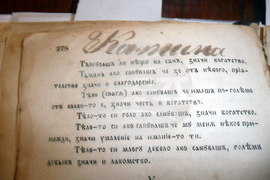 278 Калина
Тарувашъ ли нѣщо на сънь, значи богатство.
Тамянъ ако сънувашъ че зе отъ нѣкого, прїа-
телство значи и благодаренїе.
Тѣло (снага) ако сънувашъ че имашъ по-голѣмо
отъ колко-то е, значи честь и богатство.
Тѣло-то си голо ако сънувашъ, значи богатство.
Тѣло-то си ако сънувашъ че му мени нѣкое при-
мѣжди, значи умаленїе на имане-то ти.
Тѣло-то си много дебело ако сънувашъ, голѣмъ
доказва значи и лакомство.